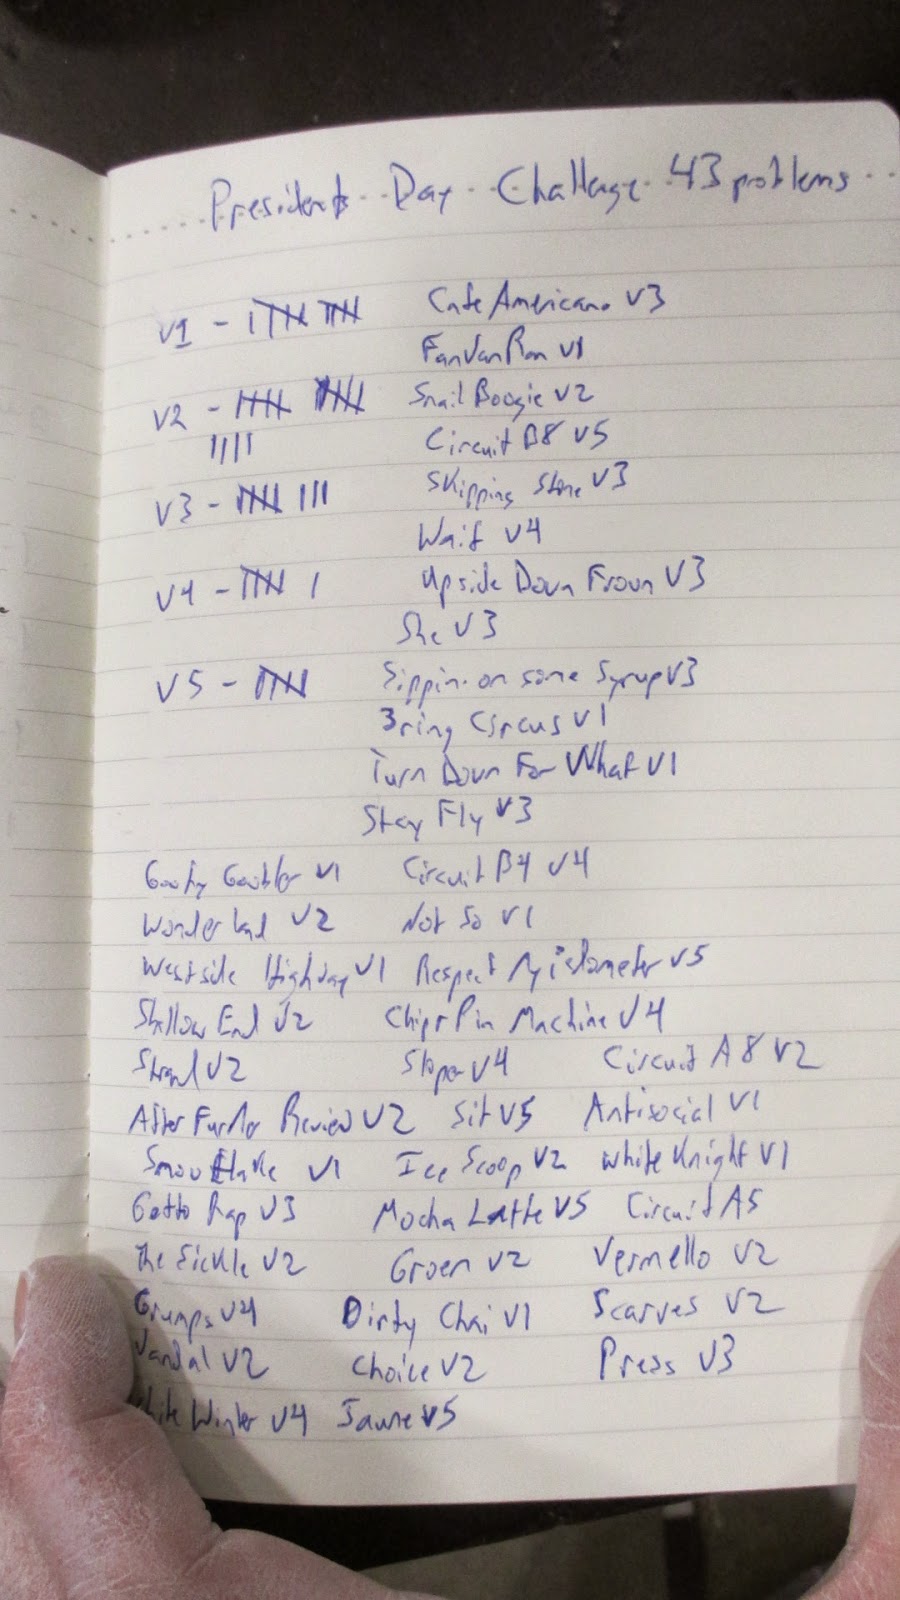 Presidents Day Challenge 43 problems
V1 - Cafe Americano V3
FanVanRon V1
V2 - Snail Boogie V2
Circuit B8 V5
V3 - Skipping Stone V3
Wait V4
V4 - Upside Down Frown V3
She V3
V5 - Sippin on some Syrup V3
3 ring Circus V1
Turn Down For What V1
Stay Fly V3
V1 Circuit B4 V4
Wonderland V2 Not So V1
Westside Highway V1 Respect My V5
Shallow End V2 Machine V4
V2 Sloper V4 Circuit A8 V2
After Further Review V2 Sit V5 Antisocial V1
Snowflake V1 Ice Scoop V2 White Knight V1
Getto Rap V3 Mocha Latte V5 Circuit A5
The Sickle V2 Groen V2 Vermello V2
Grumps V4 Dirty Chai V1 Scarves V2
Vandal V2 Choice V2 Press V3
White Winter V4 V5